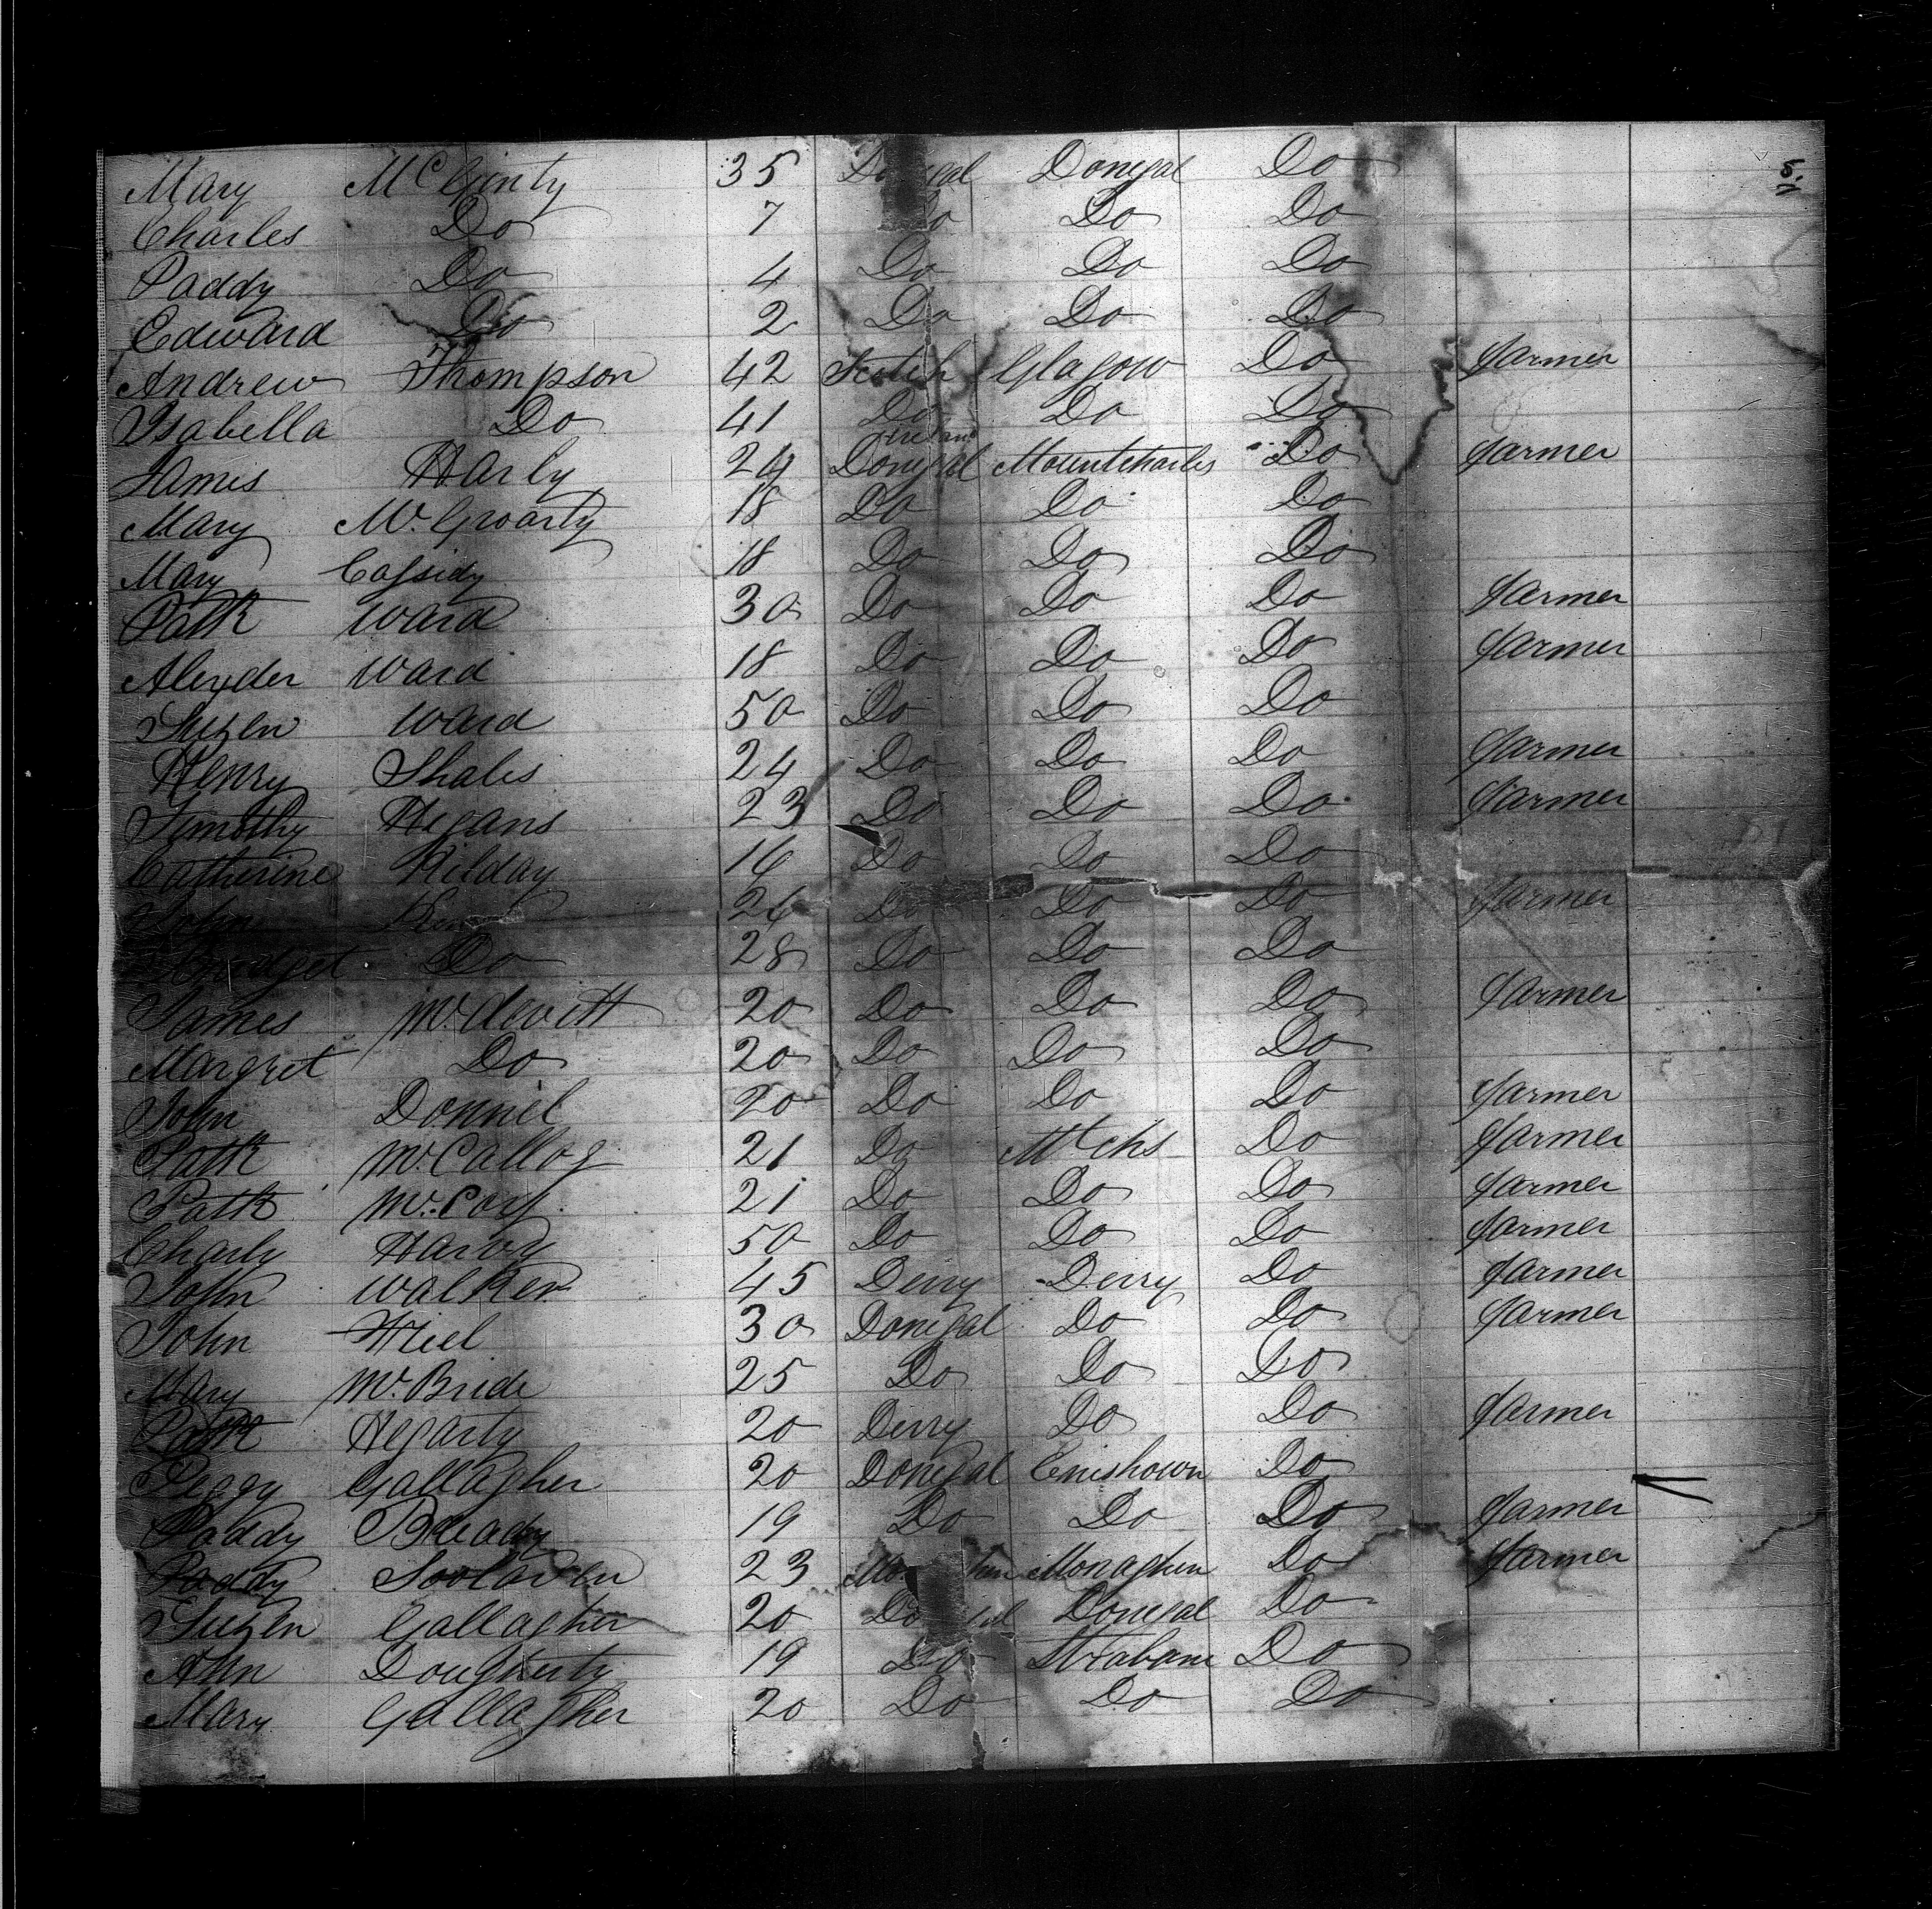 5.
Mary McGinty 35 Donegal Donegal Do
Charles Do 7 Do Do Do
Paddy Do 4 Do Do Do
Edward Do 2 Do Do Do
Andrew Thompson 42 Scotch Glagow Do farmer
Isabella Do 41 Do Do Do
Ireland
James Harly 24 Donegal Mountcharles Do farmer
Mary McGroarty 18 Do Do Do
Mary Cassidy 18 Do Do Do
Patk Ward 30 Do Do Do farmer
Alexder Ward 18 Do Do Do farmer
Suzen Ward 50 Do Do Do
Henry Shales 24 Do Do Do farmer
Timothy Hegans 23 Do Do Do farmer
Catherine Kilday 16 Do Do Do
John 26 Do Do Do farmer
Bridget Do 28 Do Do Do
James McDevitt 20 Do Do Do farmer
Margret Do 20 Do Do Do
John Donnel 20 Do Do Do farmer
Patk McCallog 21 Do Mt chs Do farmer
Patk McCoy 21 Do Do Do farmer
Charly Harvy 50 Do Do Do farmer
John Walker 45 Derry Derry Do farmer
John Friel 30 Donegal Do Do farmer
Mary McBride 25 Do Do Do
Patk Hegarty 20 Derry Do Do farmer
Peggy Gallagher 20 Donegal Enishown Do
Paddy Bready 19 Do Do Do farmer
Paddy 23 Monaghen Do farmer
Suzen Gallagher 20 Donegal Do
Ann Dougherty 19 Do Strabane Do
Mary Gallagher 20 Do Do Do